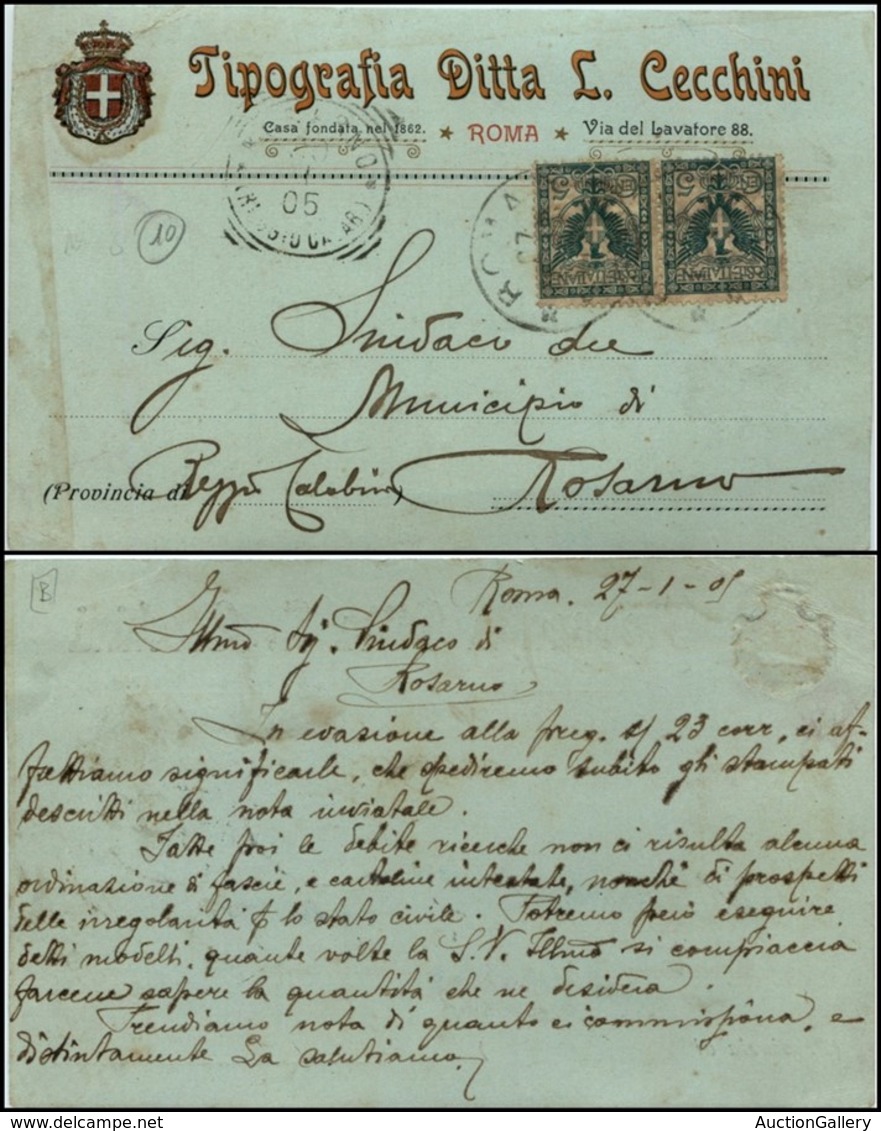 Tipografia Ditta L. Cecchini
Casa fondata nel 1862. ★ ROMA ★ Via del Lavatore 88.
05
10
ROMA
CENT 5
CENT 5
POSTE ITALIANE
POSTE ITALIANE
Sig. Sindaco del
Municipio di
(Provincia di Reggio Calabria) Rosarno
B
Roma. 27-1-05
Illmo Sig. Sindaco di
Rosarno
In evasione alla preg. s/ 23 corr, ci af-
frettiamo significarle, che spediremo subito gli stampati
descritti nella nota inviatale.
Fatte poi le debite ricerche non ci risulta alcuna
ordinazione di fascie, e cartoline intestate, nonchè di prospetti
delle irregolarità p lo stato civile. Potremo però eseguire
detti modelli, quante volte la S.V. Illmo si compiaccia
farcene sapere la quantità che ne desidera.
Prendiamo nota di quanto ci commissiona, e
distintamente La salutiamo
AuctionGallery